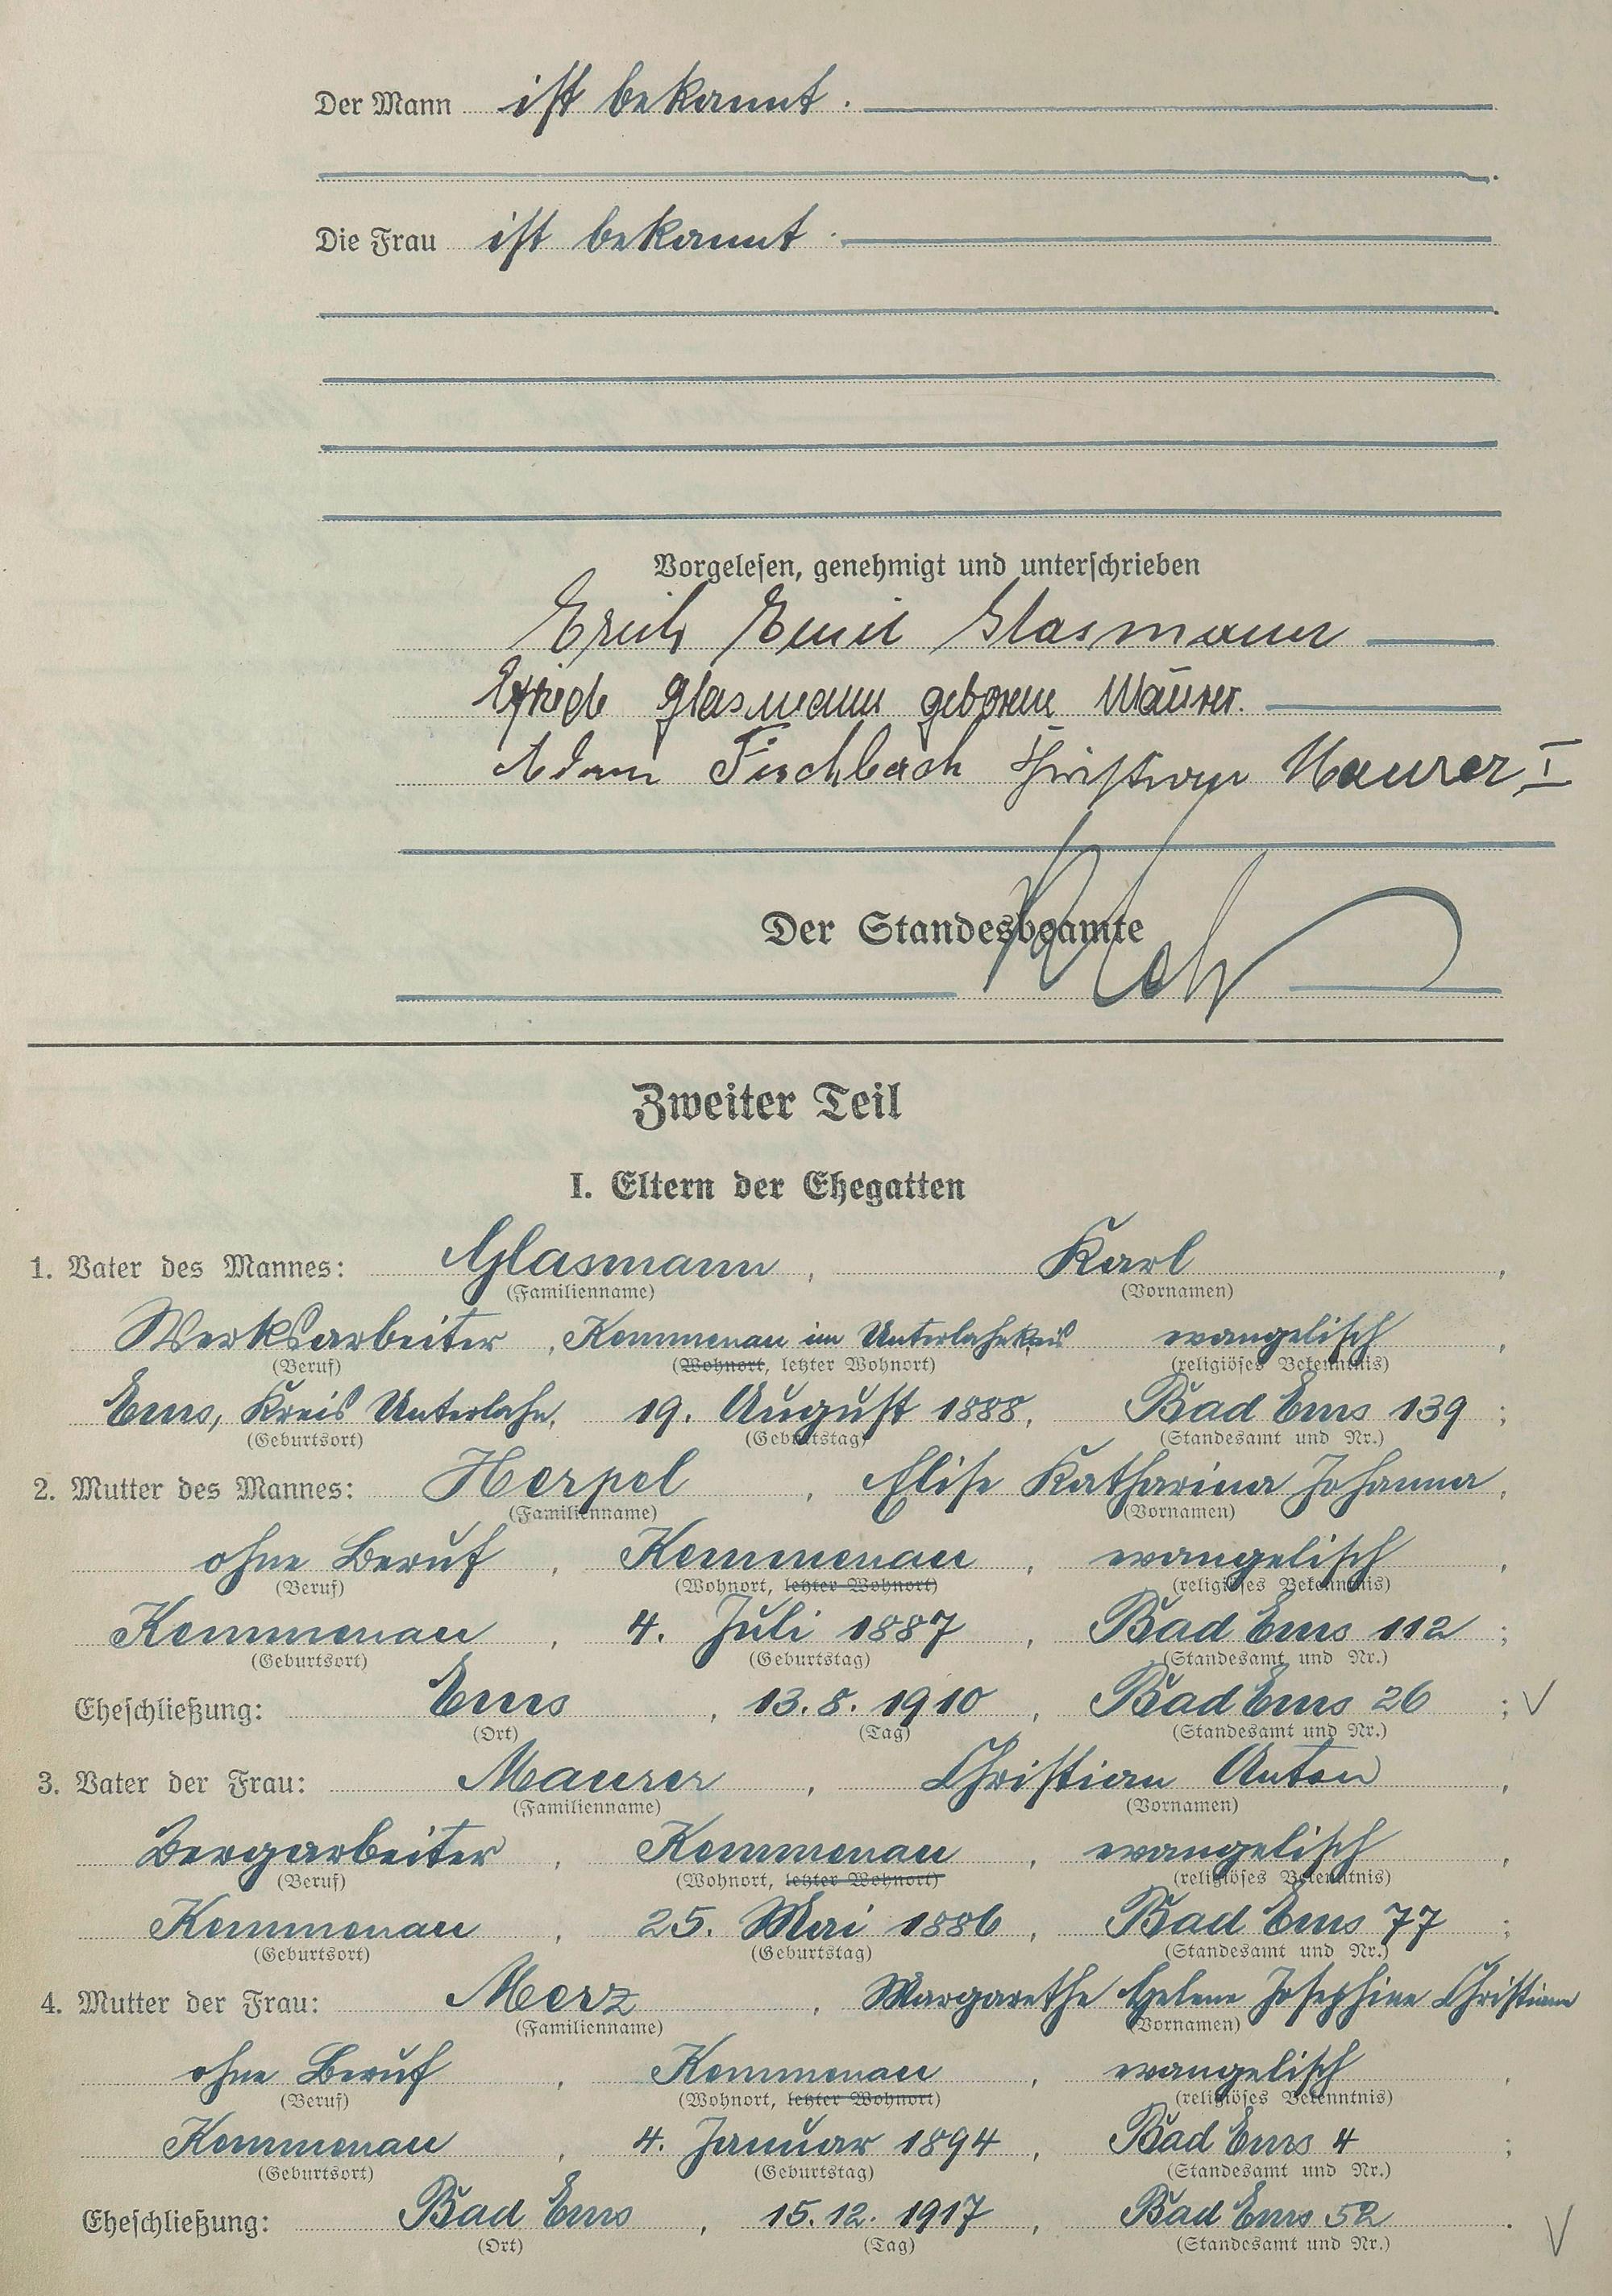 Der Mann ist bekannt.
Die Frau ist bekannt.
Vorgelesen, genehmigt und unterschrieben
Erich Emil Glasmann
Glasmann geborene Maurer.
Adam Fischbach Christian Maurer I
Der Standesbeamte
Zweiter Teil
I. Eltern der Ehegatten
1. Vater des Mannes: Glasmann, Karl,
(Familienname) (Vornamen)
Werksarbeiter, Kemmenau im Unterlahnkreis evangelisch,
(Beruf) (Wohnort, letzter Wohnort) (religiöses Bekenntnis)
Ems, Kreis Unterlahn, 19. August 1888, Bad Ems 139;
(Geburtsort) (Geburtstag) (Standesamt und Nr.)
2. Mutter des Mannes: Herpel, Elise Katharina Johanna,
(Familienname) (Vornamen)
ohne Beruf, Kemmenau, evangelisch,
(Beruf) (Wohnort, letzter Wohnort) (religiöses Bekenntnis)
Kemmenau, 4. Juli 1887, Bad Ems 112;
(Geburtsort) (Geburtstag) (Standesamt und Nr.)
Eheschließung: Ems, 13.8.1910, Bad Ems 26;
(Ort) (Tag) (Standesamt und Nr.)
3. Vater der Frau: Maurer, Christian Anton,
(Familienname) (Vornamen)
Bergarbeiter, Kemmenau, evangelisch,
(Beruf) (Wohnort, letzter Wohnort) (religiöses Bekenntnis)
Kemmenau, 25. Mai 1886, Bad Ems 77;
(Geburtsort) (Geburtstag) (Standesamt und Nr.)
4. Mutter der Frau: Merz, Margarethe Helene Josephine Christiane
(Familienname) (Vornamen)
ohne Beruf, Kemmenau, evangelisch,
(Beruf) (Wohnort, letzter Wohnort) (religiöses Bekenntnis)
Kemmenau, 4. Januar 1894, Bad Ems 4;
(Geburtsort) (Geburtstag) (Standesamt und Nr.)
Eheschließung: Bad Ems, 15.12.1917, Bad Ems 52.
(Ort) (Tag) (Standesamt und Nr.)